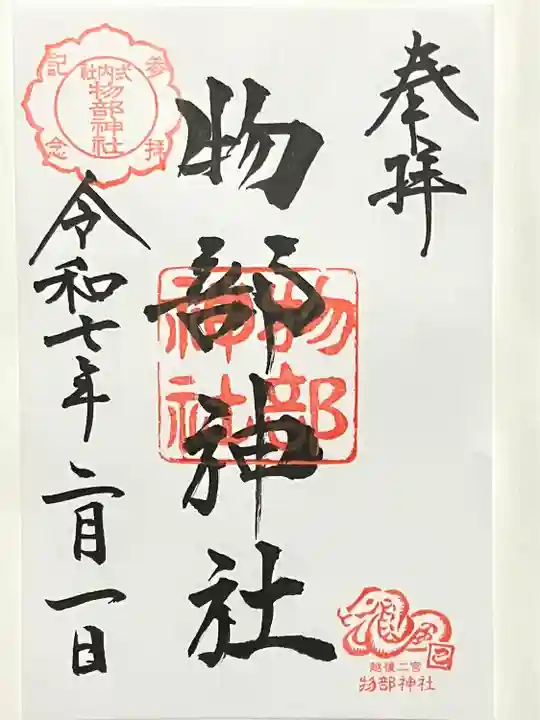 奉拝
物部神社
物部
神社
令和七年二月一日
参拝
記念
式内社
物部神社
巳
越後二宮
物部神社